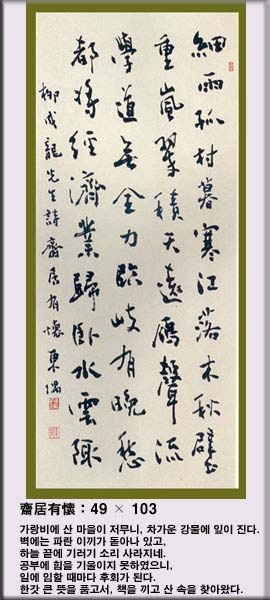 細雨孤村暮寒江落木秋壁
重嵐翠積天遠鴈聲流
學道無全力臨岐有晩愁
都將經濟業歸臥水雲陬
柳成龍先生詩齋居有懷 東
齋居有懷 : 49 × 103
가랑비에 산 마을이 저무니, 차가운 강물에 잎이 진다.
벽에는 파란 이끼가 돋아나 있고,
하늘 끝에 기러기 소리 사라지네.
공부에 힘을 기울이지 못하였으니,
일에 임할 때마다 후회가 된다.
한갓 큰 뜻을 품고서, 책을 끼고 산 속을 찾아왔다.